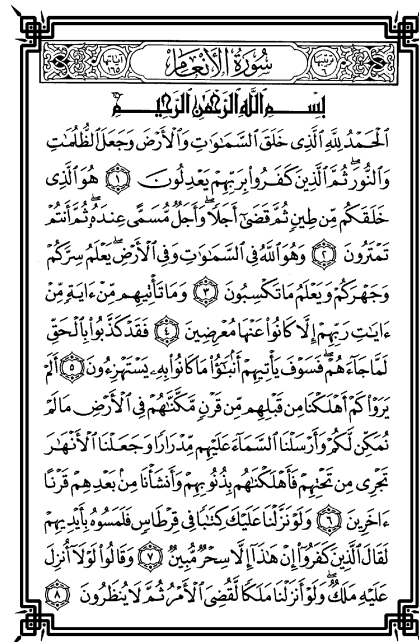 ترتيبها ٦ سُورَةُ الْأَنْعَامِ آياتها ١٦٥
بِسْمِ اللَّهِ الرَّحْمَٰنِ الرَّحِيمِ
الْحَمْدُ لِلَّهِ الَّذِي خَلَقَ السَّمَٰوَٰتِ وَالْأَرْضَ وَجَعَلَ الظُّلُمَٰتِ
وَالنُّورَ ۖ ثُمَّ الَّذِينَ كَفَرُوا بِرَبِّهِمْ يَعْدِلُونَ ١ هُوَ الَّذِي
خَلَقَكُم مِّن طِينٍ ثُمَّ قَضَىٰ أَجَلًا ۖ وَأَجَلٌ مُّسَمًّى عِندَهُ ۖ ثُمَّ أَنتُمْ
تَمْتَرُونَ ٢ وَهُوَ اللَّهُ فِي السَّمَٰوَٰتِ وَفِي الْأَرْضِ ۖ يَعْلَمُ سِرَّكُمْ
وَجَهْرَكُمْ وَيَعْلَمُ مَا تَكْسِبُونَ ٣ وَمَا تَأْتِيهِم مِّنْ ءَايَةٍ مِّنْ
ءَايَٰتِ رَبِّهِمْ إِلَّا كَانُوا عَنْهَا مُعْرِضِينَ ٤ فَقَدْ كَذَّبُوا بِالْحَقِّ
لَمَّا جَاءَهُمْ ۖ فَسَوْفَ يَأْتِيهِمْ أَنۢبَٰٓؤُا مَا كَانُوا بِهِۦ يَسْتَهْزِءُونَ ٥ أَلَمْ
يَرَوْا كَمْ أَهْلَكْنَا مِن قَبْلِهِم مِّن قَرْنٍ مَّكَّنَّٰهُمْ فِي الْأَرْضِ مَا لَمْ
نُمَكِّن لَّكُمْ وَأَرْسَلْنَا السَّمَاءَ عَلَيْهِم مِّدْرَارًا وَجَعَلْنَا الْأَنْهَٰرَ
تَجْرِي مِن تَحْتِهِمْ فَأَهْلَكْنَٰهُم بِذُنُوبِهِمْ وَأَنشَأْنَا مِنۢ بَعْدِهِمْ قَرْنًا
ءَاخَرِينَ ٦ وَلَوْ نَزَّلْنَا عَلَيْكَ كِتَٰبًا فِي قِرْطَاسٍ فَلَمَسُوهُ بِأَيْدِيهِمْ
لَقَالَ الَّذِينَ كَفَرُوا إِنْ هَٰذَا إِلَّا سِحْرٌ مُّبِينٌ ٧ وَقَالُوا لَوْلَا أُنزِلَ
عَلَيْهِ مَلَكٌ ۖ وَلَوْ أَنزَلْنَا مَلَكًا لَّقُضِيَ الْأَمْرُ ثُمَّ لَا يُنظَرُونَ ٨